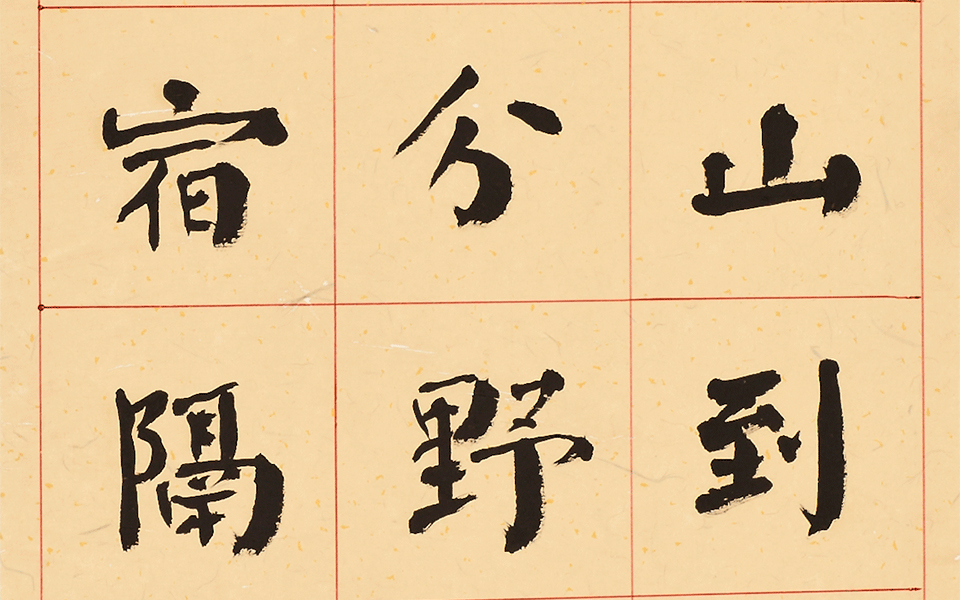 山到
分野
宿隔